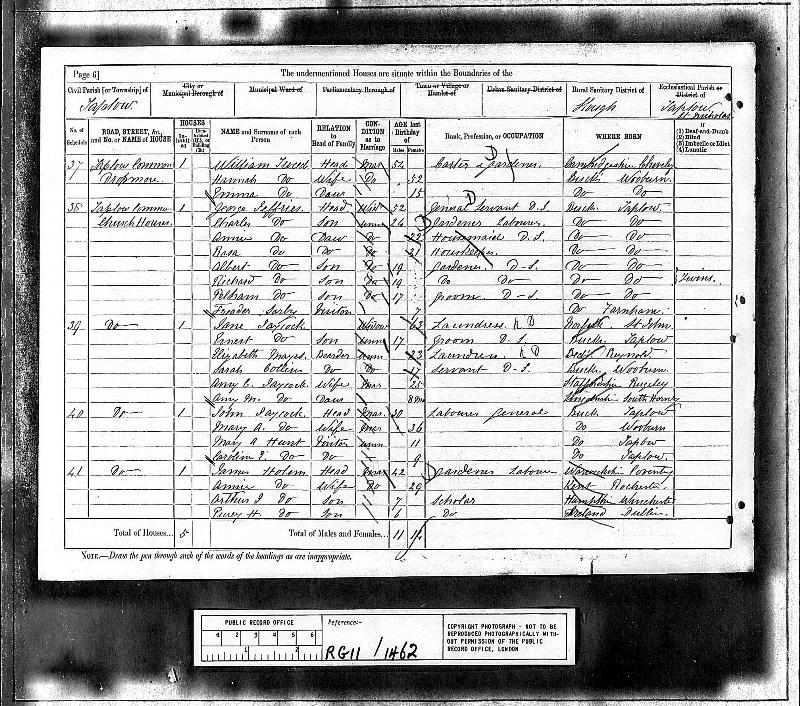 Page 6]
The undermentioned Houses are situate within the Boundaries of the
Civil Parish [or Township] of
City or Municipal Borough of
Municipal Ward of
Parliamentary Borough of
Town or Village or Hamlet of
Urban Sanitary District of
Rural Sanitary District of
Ecclesiastical Parish or District of
Taplow
Slough
Taplow St Nicholas
No. of Schedule
ROAD, STREET, &c., and No. or NAME of HOUSE
HOUSES
NAME and Surname of each Person
RELATION to Head of Family
CONDITION as to Marriage
AGE last Birthday of
Males
Females
Rank, Profession, or OCCUPATION
WHERE BORN
If
(1) Deaf-and-Dumb
(2) Blind
(3) Imbecile or Idiot
(4) Lunatic
37 Taplow Common 1 William Head Mar 52 Carter & Gardener D
Dropmore Hannah Do Wife Do 52 Bucks Wooburn
Emma Do Daur 15 Do Do
38 Taplow Common 1 George Jeffries Head Widr 52 General Servant D.S. Bucks Taplow
Church Houses Charles Do Son Unm 26 Gardener Labourer Do Do
Annie Do Daur Do 22 Housemaid D.S. Do Do
Rosa Do Do Do 21 Housekeeper Do Do
Albert Do Son Do 19 Gardener D-S. Do Do
Richard Do Son Do 19 Do Do Do Do Twins.
Pelham Do Son Do 17 Groom D-S. Do Do
Sarby Visitor 7 Do Farnham
39 Do 1 Jane Jaycock Widow 63 Laundress Norfolk St John
Ernest Do Son Unm 17 Groom D.S. Bucks Taplow
Elizabeth Mayes Boarder Unm 23 Laundress Beds
Sarah Collins Do Do 17 Servant D-S. Bucks Wooburn
Amy E. Jaycock Wife Mar 25 Staffordshire Rugeley
Amy M. Do Daur 8mo Lincolnsh South
40 Do 1 John Jaycock Head Mar 30 Labourer General Bucks Taplow
Mary A. Do Wife Mar 36 Do Wooburn
Mary A Hunt Visitor Unm 11 Do Taplow
Caroline E. Do Do 9 Do Taplow
41 Do 1 James Holem Head Mar 42 Gardener Labourer Warwickshire Coventry
Annie Do Wife Do 29 Kent Rochester
Arthur J Do Son 7 Scholar Hampshire Winchester
Percy H. Do Son 6 Do Ireland Dublin
Total of Houses... 5
Total of Males and Females... 11 14
NOTE.—Draw the pen through such of the words of the headings as are inappropriate.
PUBLIC RECORD OFFICE
1 2 3 4 5 6
1 2
Reference:-
RG11 / 1462
COPYRIGHT PHOTOGRAPH - NOT TO BE
REPRODUCED PHOTOGRAPHICALLY WITH-
OUT PERMISSION OF THE PUBLIC
RECORD OFFICE, LONDON